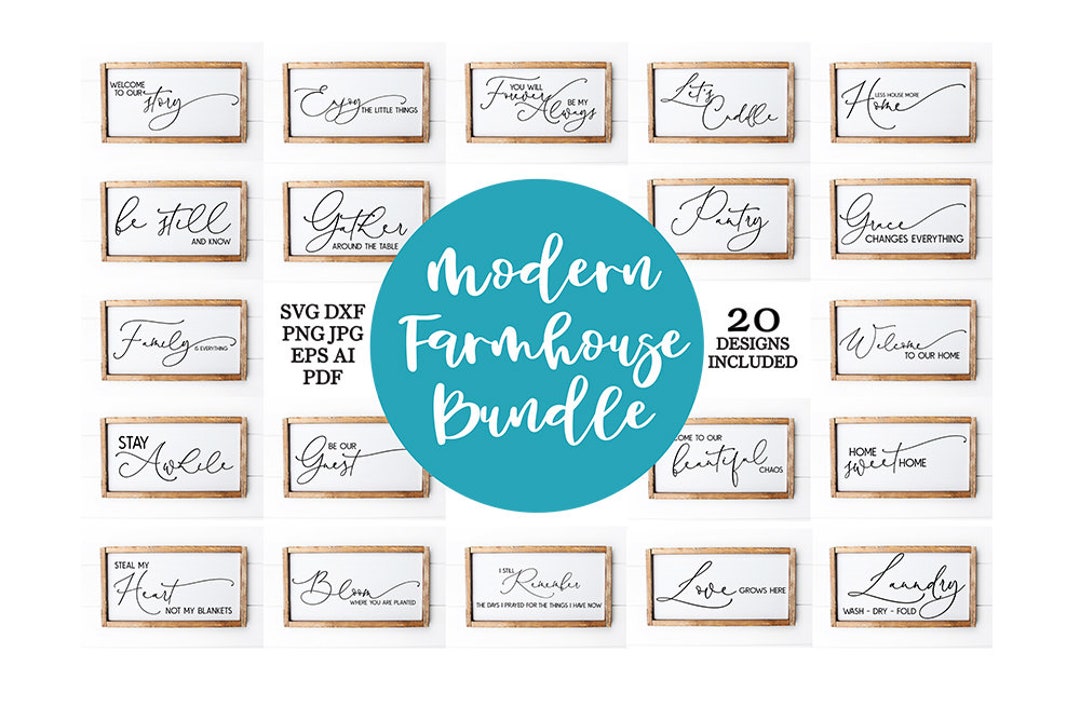 WELCOME
TO OUR story
Enjoy THE LITTLE THINGS
YOU WILL
Forever BE MY
Always
Let's
Cuddle
LESS HOUSE MORE
Home
be still
AND KNOW
Gather
AROUND THE TABLE
Pantry
Grace
CHANGES EVERYTHING
Family IS EVERYTHING
SVG DXF
PNG JPG
EPS AI
PDF
modern
Farmhouse
Bundle
20
DESIGNS
INCLUDED
Welcome
TO OUR HOME
STAY
Awhile
BE OUR
Guest
COME TO OUR
beautiful CHAOS
HOME
sweet HOME
STEAL MY
Heart
NOT MY BLANKETS
Bloom
WHERE YOU ARE PLANTED
I STILL
Remember
THE DAYS I PRAYED FOR THE THINGS I HAVE NOW
Love GROWS HERE
Laundry
WASH - DRY - FOLD